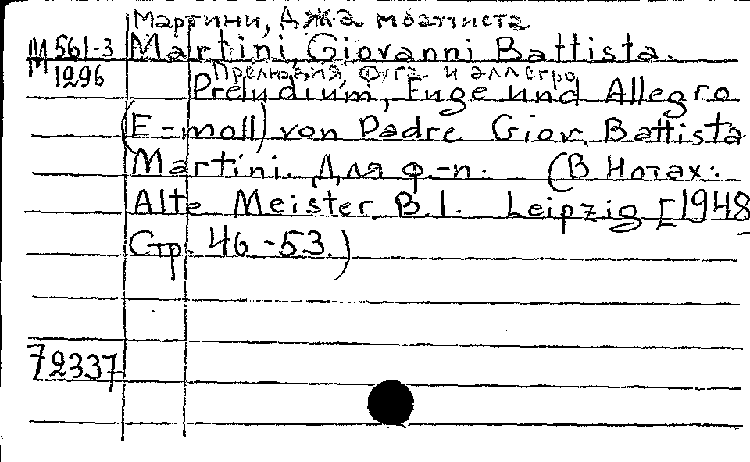 Мартини, Джамбаттиста
М 561-3 Martini, Giovanni Battista.
М 1296 Прелюдия, фуга и аллегро
Preludium, Fuge und Allegro
(E-moll) von Padre Giov. Battista
Martini. Для ф-п. (В нотах:
Alte Meister B.I. Leipzig [1948
Стр. 46-53.)
72337